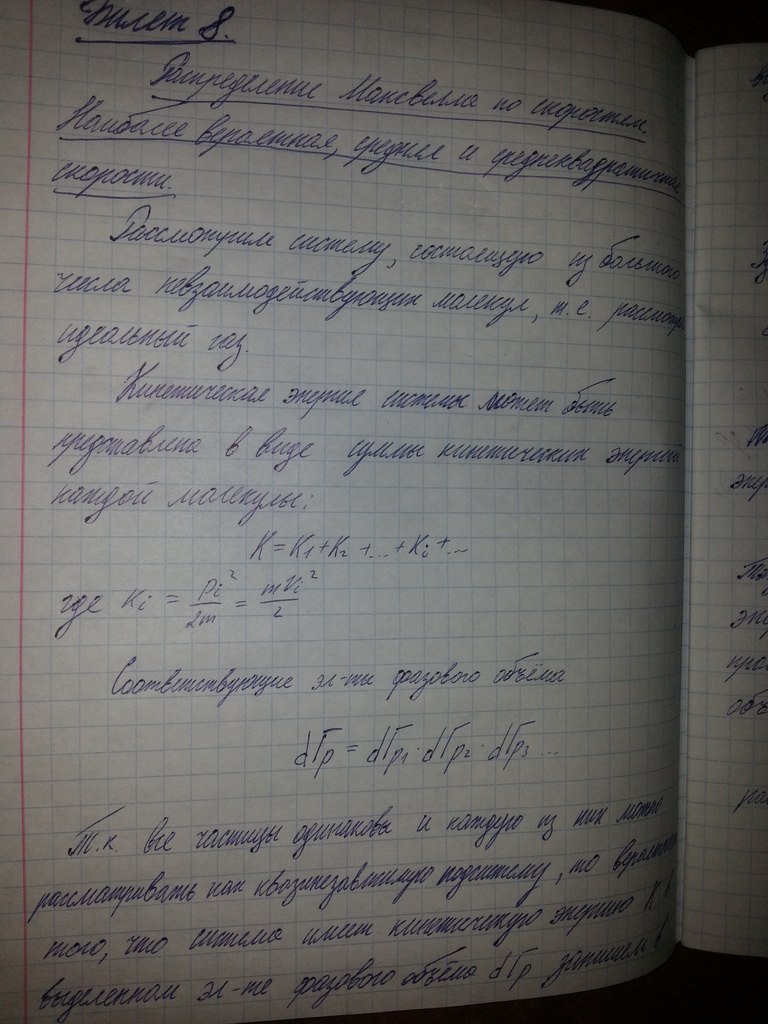 Билет 8.
Распределение Максвелла по скоростям.
Наиболее вероятная, средняя и среднеквадратичная
скорости.
Рассмотрим систему, состоящую из большого
числа невзаимодействующих молекул, т.е. рассмотрим
идеальный газ.
Кинетическая энергия системы может быть
представлена в виде суммы кинетических энергий
каждой молекулы:
K = K₁ + K₂ + ... + Kᵢ + ...
где Kᵢ = pᵢ²/2m = mVᵢ²/2
Соответствующие эл-ты фазового объёма
dГp = dГp₁ · dГp₂ · dГp₃ ...
Т.к. все частицы одинаковы и каждую из них можно
рассматривать как квазинезависимую подсистему, то вероятность
того, что система имеет кинетическую энергию K в
выделенном эл-те фазового объёма dГp запишем в